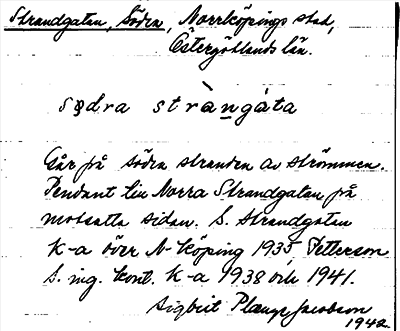 Strandgatan, Södra, Norrköpings stad,
Östergötlands län.
sødra stràngáta
Går på södra stranden av strömmen.
Pendant till Norra Strandgatan på
motsatta sidan. S. Strandgatan
K-a över N-köping 1935, Petterson
S. ing. kont. K-a 1938 och 1941.
Sigbrit Plange Jacobson
1942